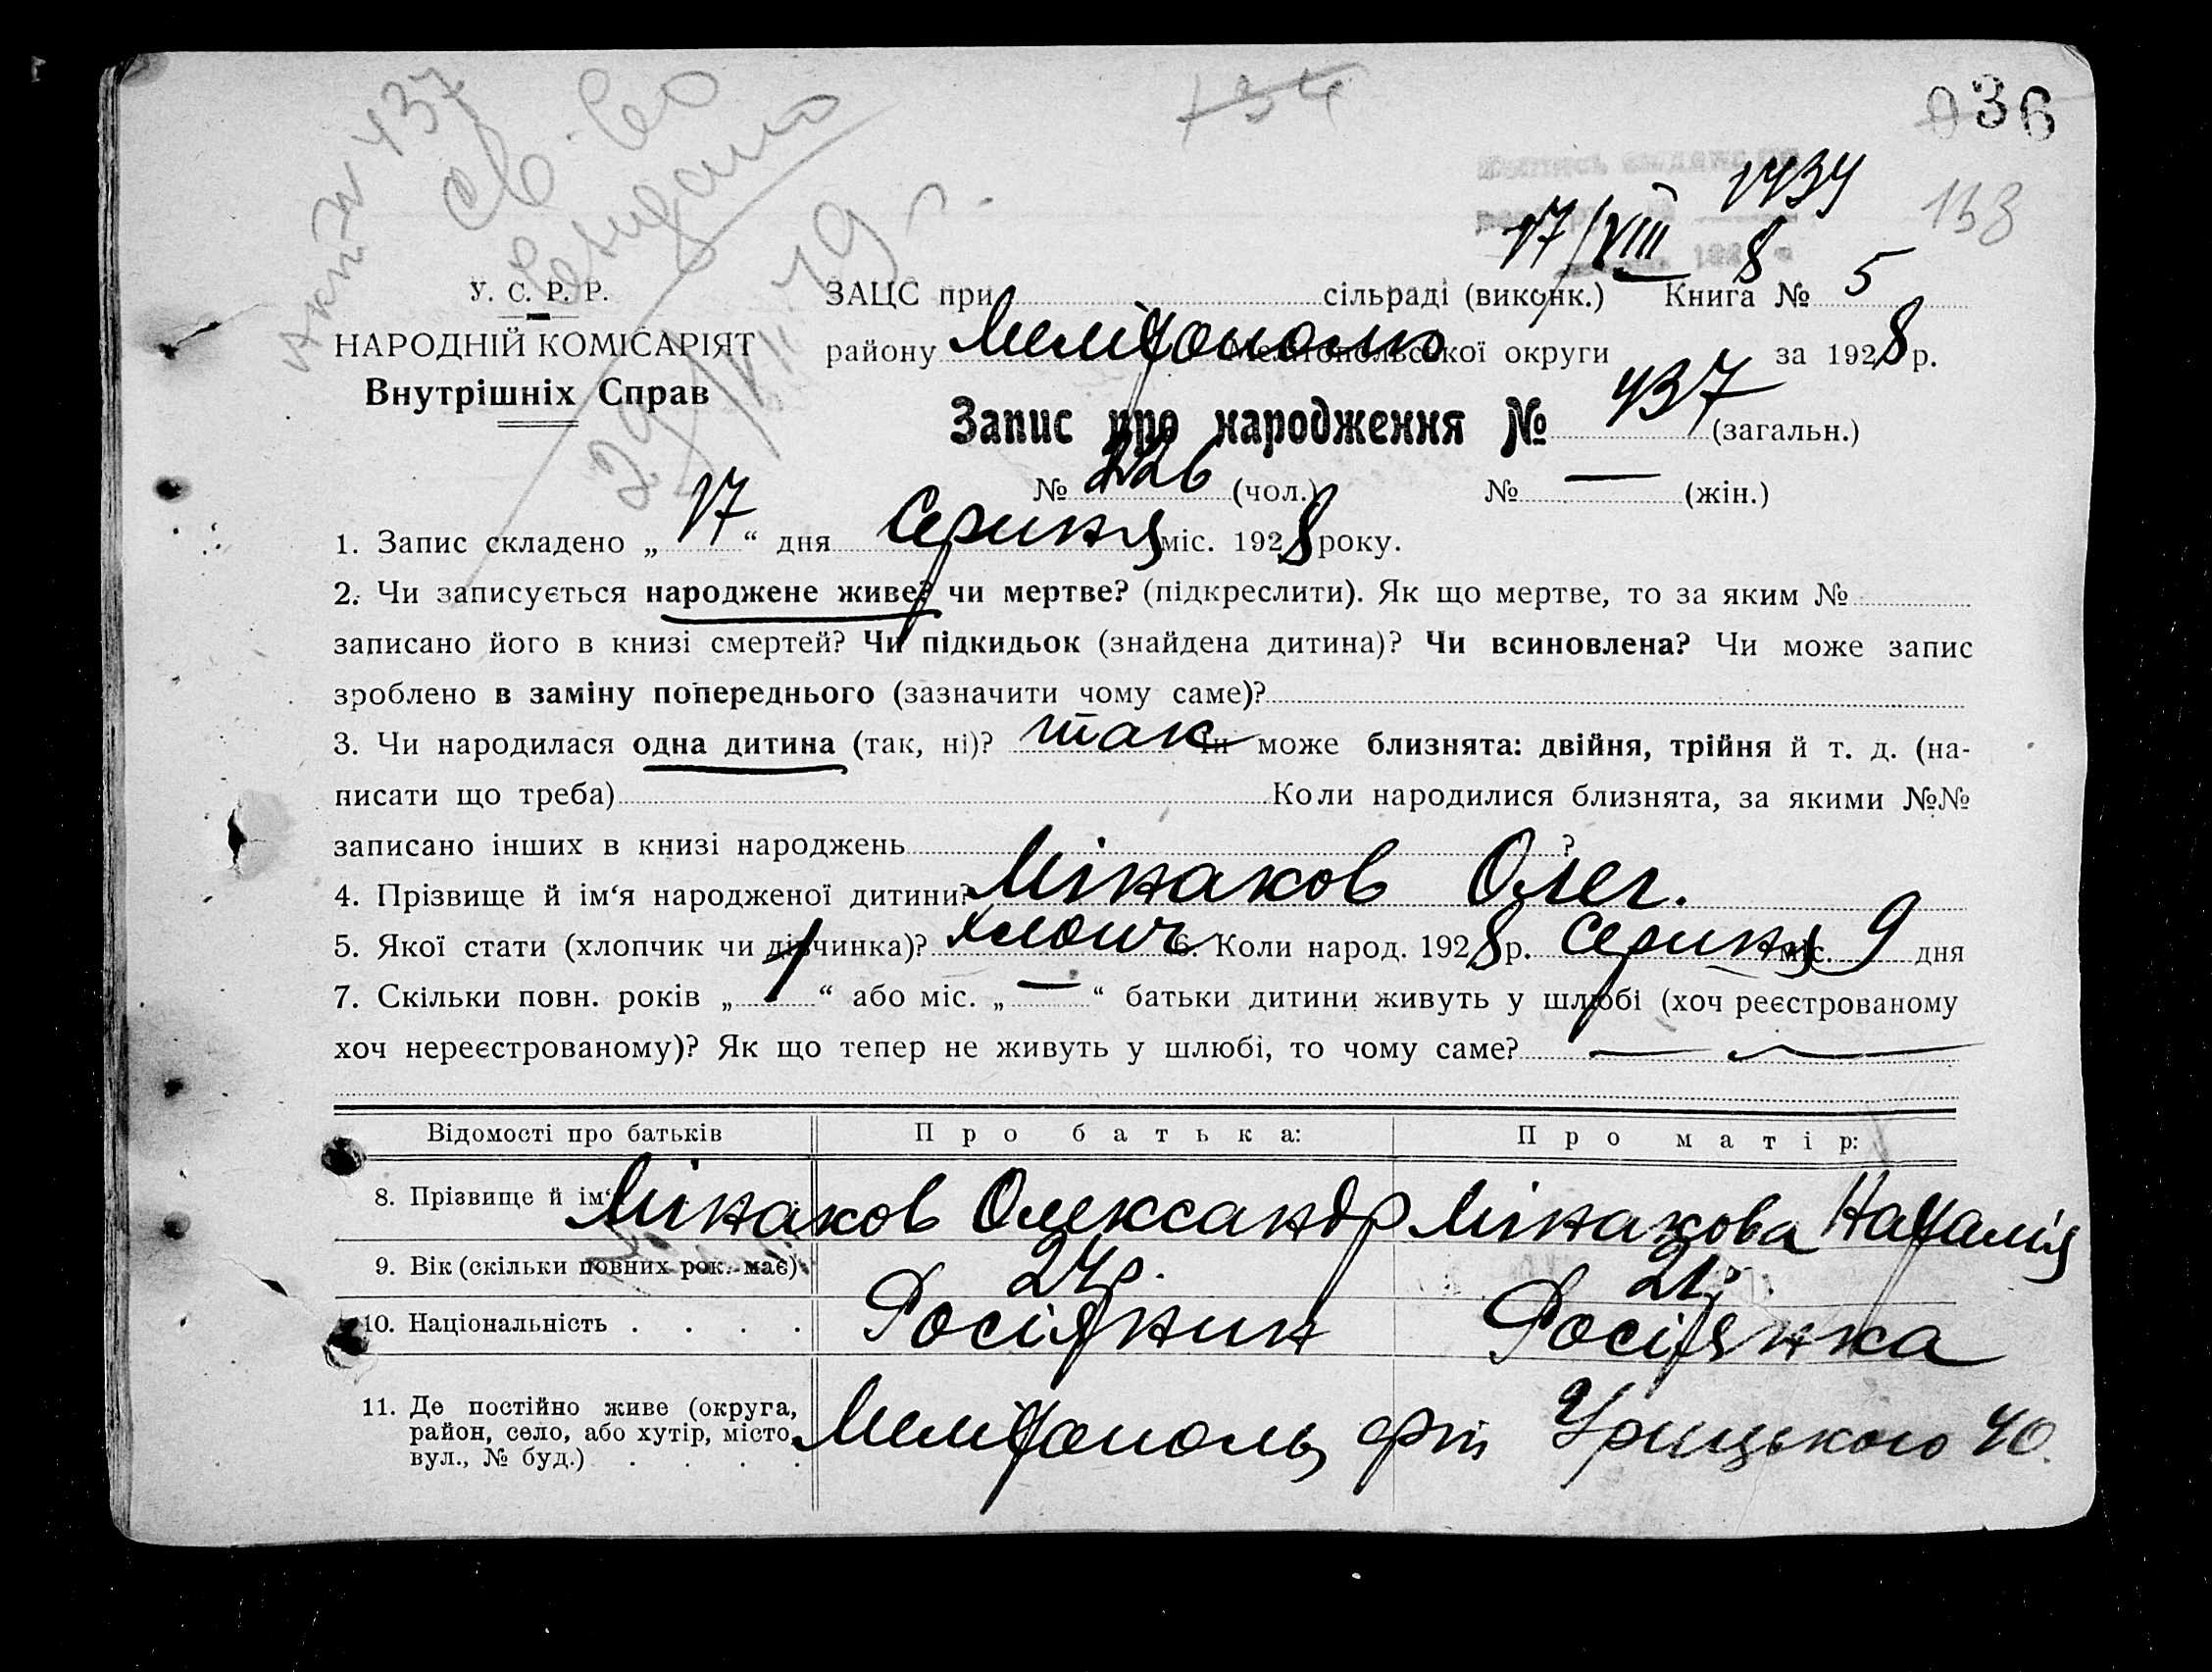 акт № 437
св-во
выдано
29/VII 19 г.
134
036
1434
138
17/VIII 8
У. С. Р. Р.
НАРОДНІЙ КОМІСАРІЯТ
Внутрішніх Справ
ЗАЦС при сільраді (виконк.) Книга № 5
району Мелітополь Мелітопольської округи за 1928 р.
Запис про народження № 437 (загальн.)
№ 226 (чол.) № — (жін.)
1. Запис складено „ 17 “ дня Серпня міс. 1928 року.
2. Чи записується народжене живе? чи мертве? (підкреслити). Як що мертве, то за яким №
записано його в книзі смертей? Чи підкидьок (знайдена дитина)? Чи всиновлена? Чи може запис
зроблено в заміну попереднього (зазначити чому саме)?
3. Чи народилася одна дитина (так, ні)? так Чи може близнята: двійня, трійня й т. д. (на-
писати що треба) Коли народилися близнята, за якими №№
записано інших в книзі народжень ?
4. Прізвище й ім‘я народженої дитини? Мінаков Олег.
5. Якої стати (хлопчик чи дівчинка)? хлопч 6. Коли народ. 1928 р. Серпня міс. 9 дня
7. Скільки повн. років „ 1 “ або міс. „ — “ батьки дитини живуть у шлюбі (хоч реєстрованому
хоч нереєстрованому)? Як що тепер не живуть у шлюбі, то чому саме? — —
Відомості про батьків Про батька: Про матір:
8. Прізвище й ім‘я Мінаков Олександр Мінакова Наталія
9. Вік (скільки повних рок. має) 24 р. 21 р.
10. Національність . . . . Росіянин Росіянка
11. Де постійно живе (округа,
район, село, або хутір, місто, Мелітополь Урицького 40.
вул., № буд.) . . . .